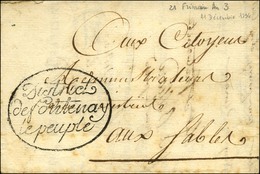 21 frimaire An 3
11 Décembre 1794
Aux Citoyens
Administrateurs
District
de Fontenay
le peuple
aux Sables